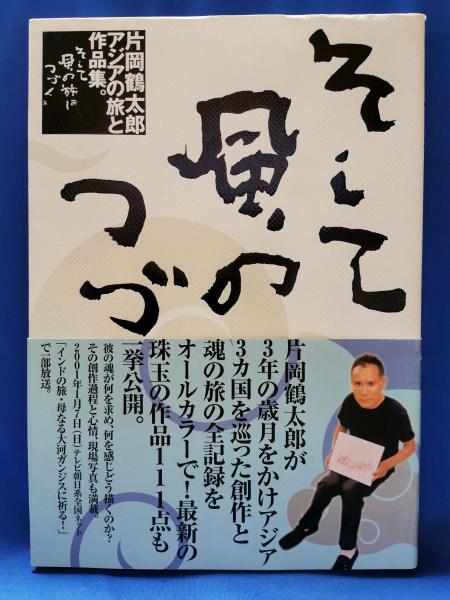 片岡鶴太郎
アジアの旅と
作品集。
そして
風の旅は
つづく。
そして
風の
つづ
片岡鶴太郎が
3年の歳月をかけアジア
3カ国を巡った創作と
魂の旅の全記録を
オールカラーで!最新の
珠玉の作品111点も
一挙公開。
彼の魂が何を求め、何を感じどう描くのか?
その創作過程と心情、現場写真も満載。
2001年1月7日(日)テレビ朝日系全国ネット
「インドの旅・母なる大河ガンジスに祈る!」
で一部放送。